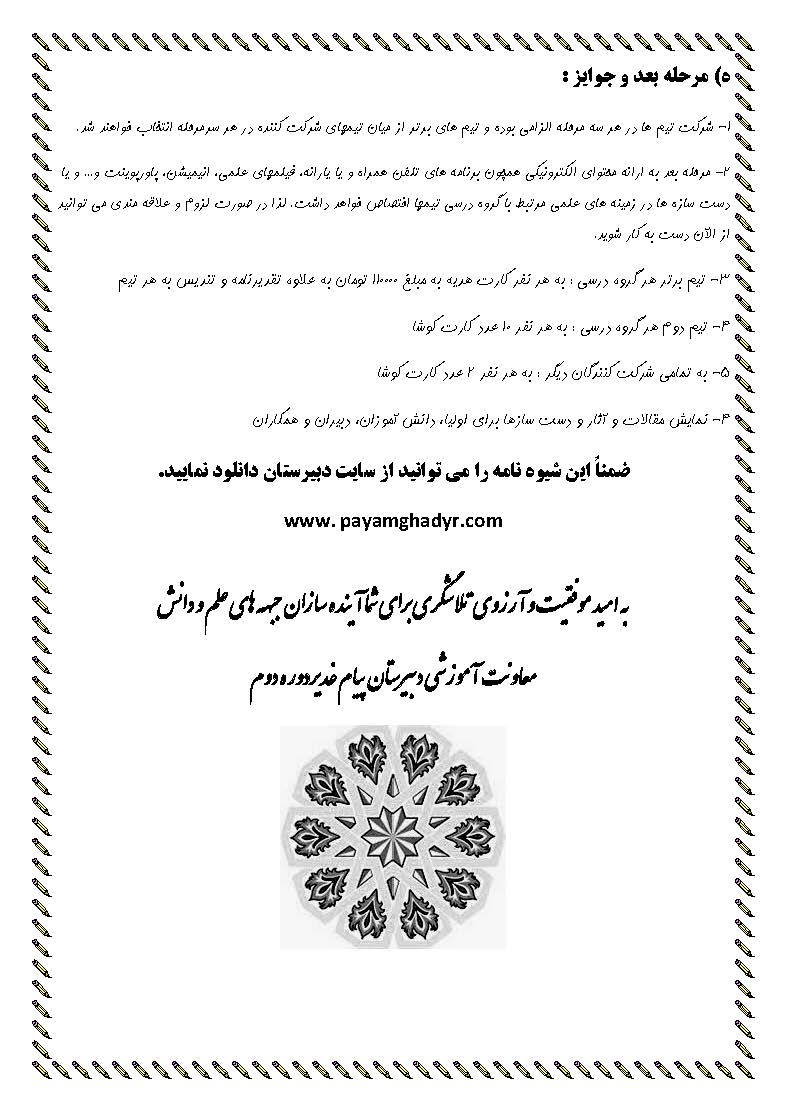 ه) مرحله بعد و جوایز :
۱- شرکت تیم ها در هر سه مرحله الزامی بوده و تیم های برتر از میان تیمهای شرکت کننده در هر سرمرحله انتخاب خواهند شد.
۲- مرحله بعد به ارائه محتوای الکترونیکی همچون برنامه های تلفن همراه و یا یارانه، فیلمهای علمی، انیمیشن، پاورپوینت و... و یا
دست سازه ها در زمینه های علمی مرتبط با گروه درسی تیمها اختصاص خواهد داشت. لذا در صورت لزوم و علاقه مندی می توانید
از الآن دست به کار شوید.
۳- تیم برتر هر گروه درسی : به هر نفر کارت هدیه به مبلغ ۱۱۰۰۰۰ تومان به علاوه تقدیرنامه و تندیس به هر تیم
۴- تیم دوم هر گروه درسی : به هر نفر ۱۰ عدد کارت کوشا
۵- به تمامی شرکت کنندگان دیگر : به هر نفر ۲ عدد کارت کوشا
۴- نمایش مقالات و آثار و دست سازها برای اولیا، دانش آموزان، دبیران و همکاران
ضمناً این شیوه نامه را می توانید از سایت دبیرستان دانلود نمایید.
www. payamghadyr.com
به امید موفقیت و آرزوی تلاشگری برای شما آینده سازان جبهه های علم و دانش
معاونت آموزشی دبیرستان پیام غدیر دوره دوم